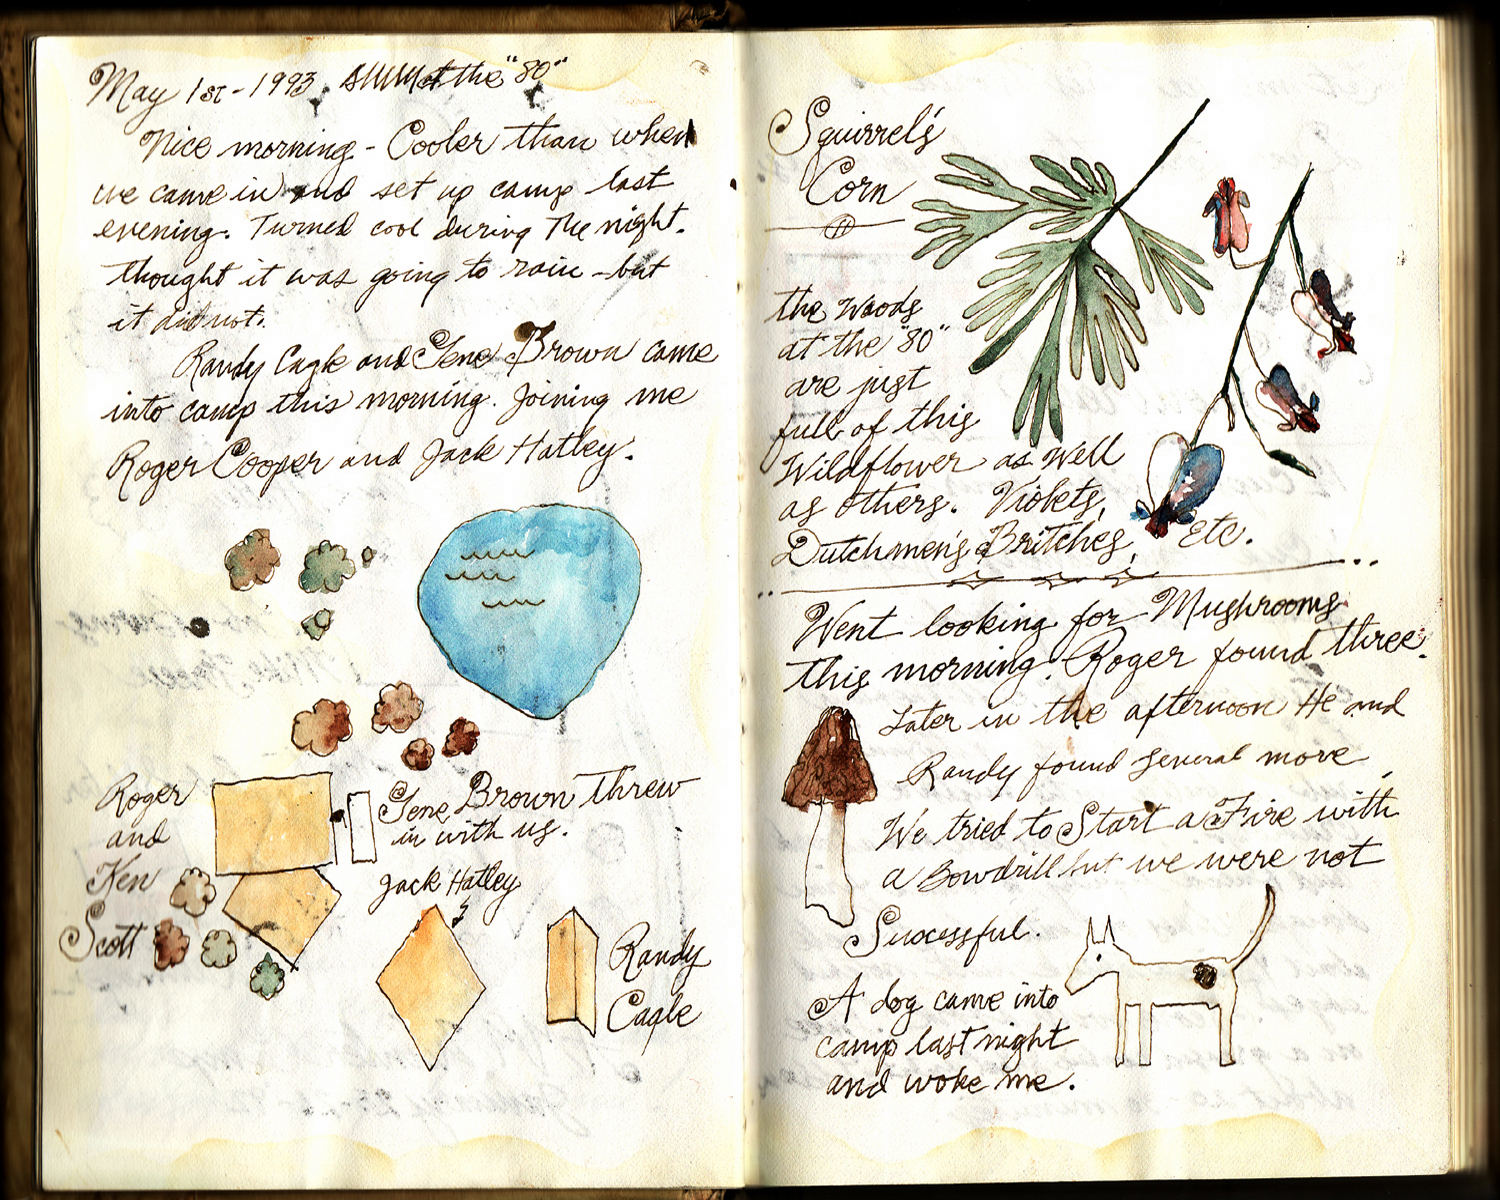 May 1st - 1993. at the "80"
Nice morning - Cooler than when
we came in and set up camp last
evening. Turned cool during The night.
thought it was going to rain - but
it did not.
Randy Cagle and Gene Brown came
into camp this morning. Joining me
Roger Cooper and Jack Hatley.
Roger
and
Ken
Scott
Gene Brown threw
in with us.
Jack Hatley
Randy
Cagle
Squirrel's
Corn
the Woods
at the "80"
are just
full of this
Wildflower as well
as others. Violets,
Dutchmen's Britches, Etc.
Went looking for Mushrooms
this morning. Roger found three.
Later in the afternoon He and
Randy found several more.
We tried to Start a Fire with
a Bowdrill but we were not
Successful.
A dog came into
camp last night
and woke me.